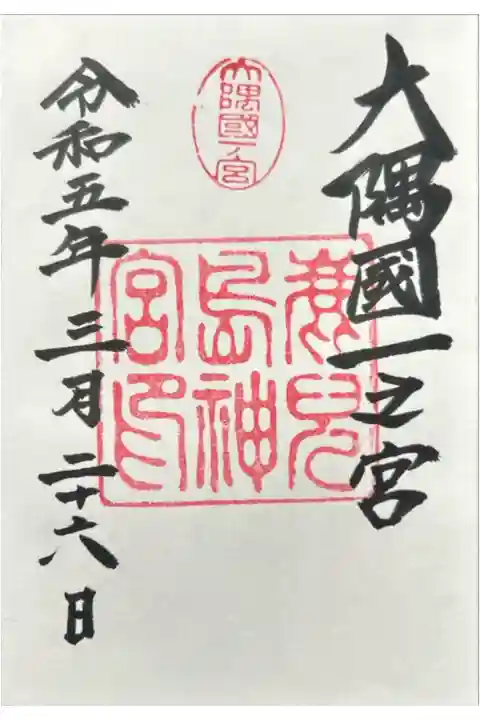 大隅國一之宮
大隅國一ノ宮
鹿児
島神
宮印
令和五年 三月 二十六日